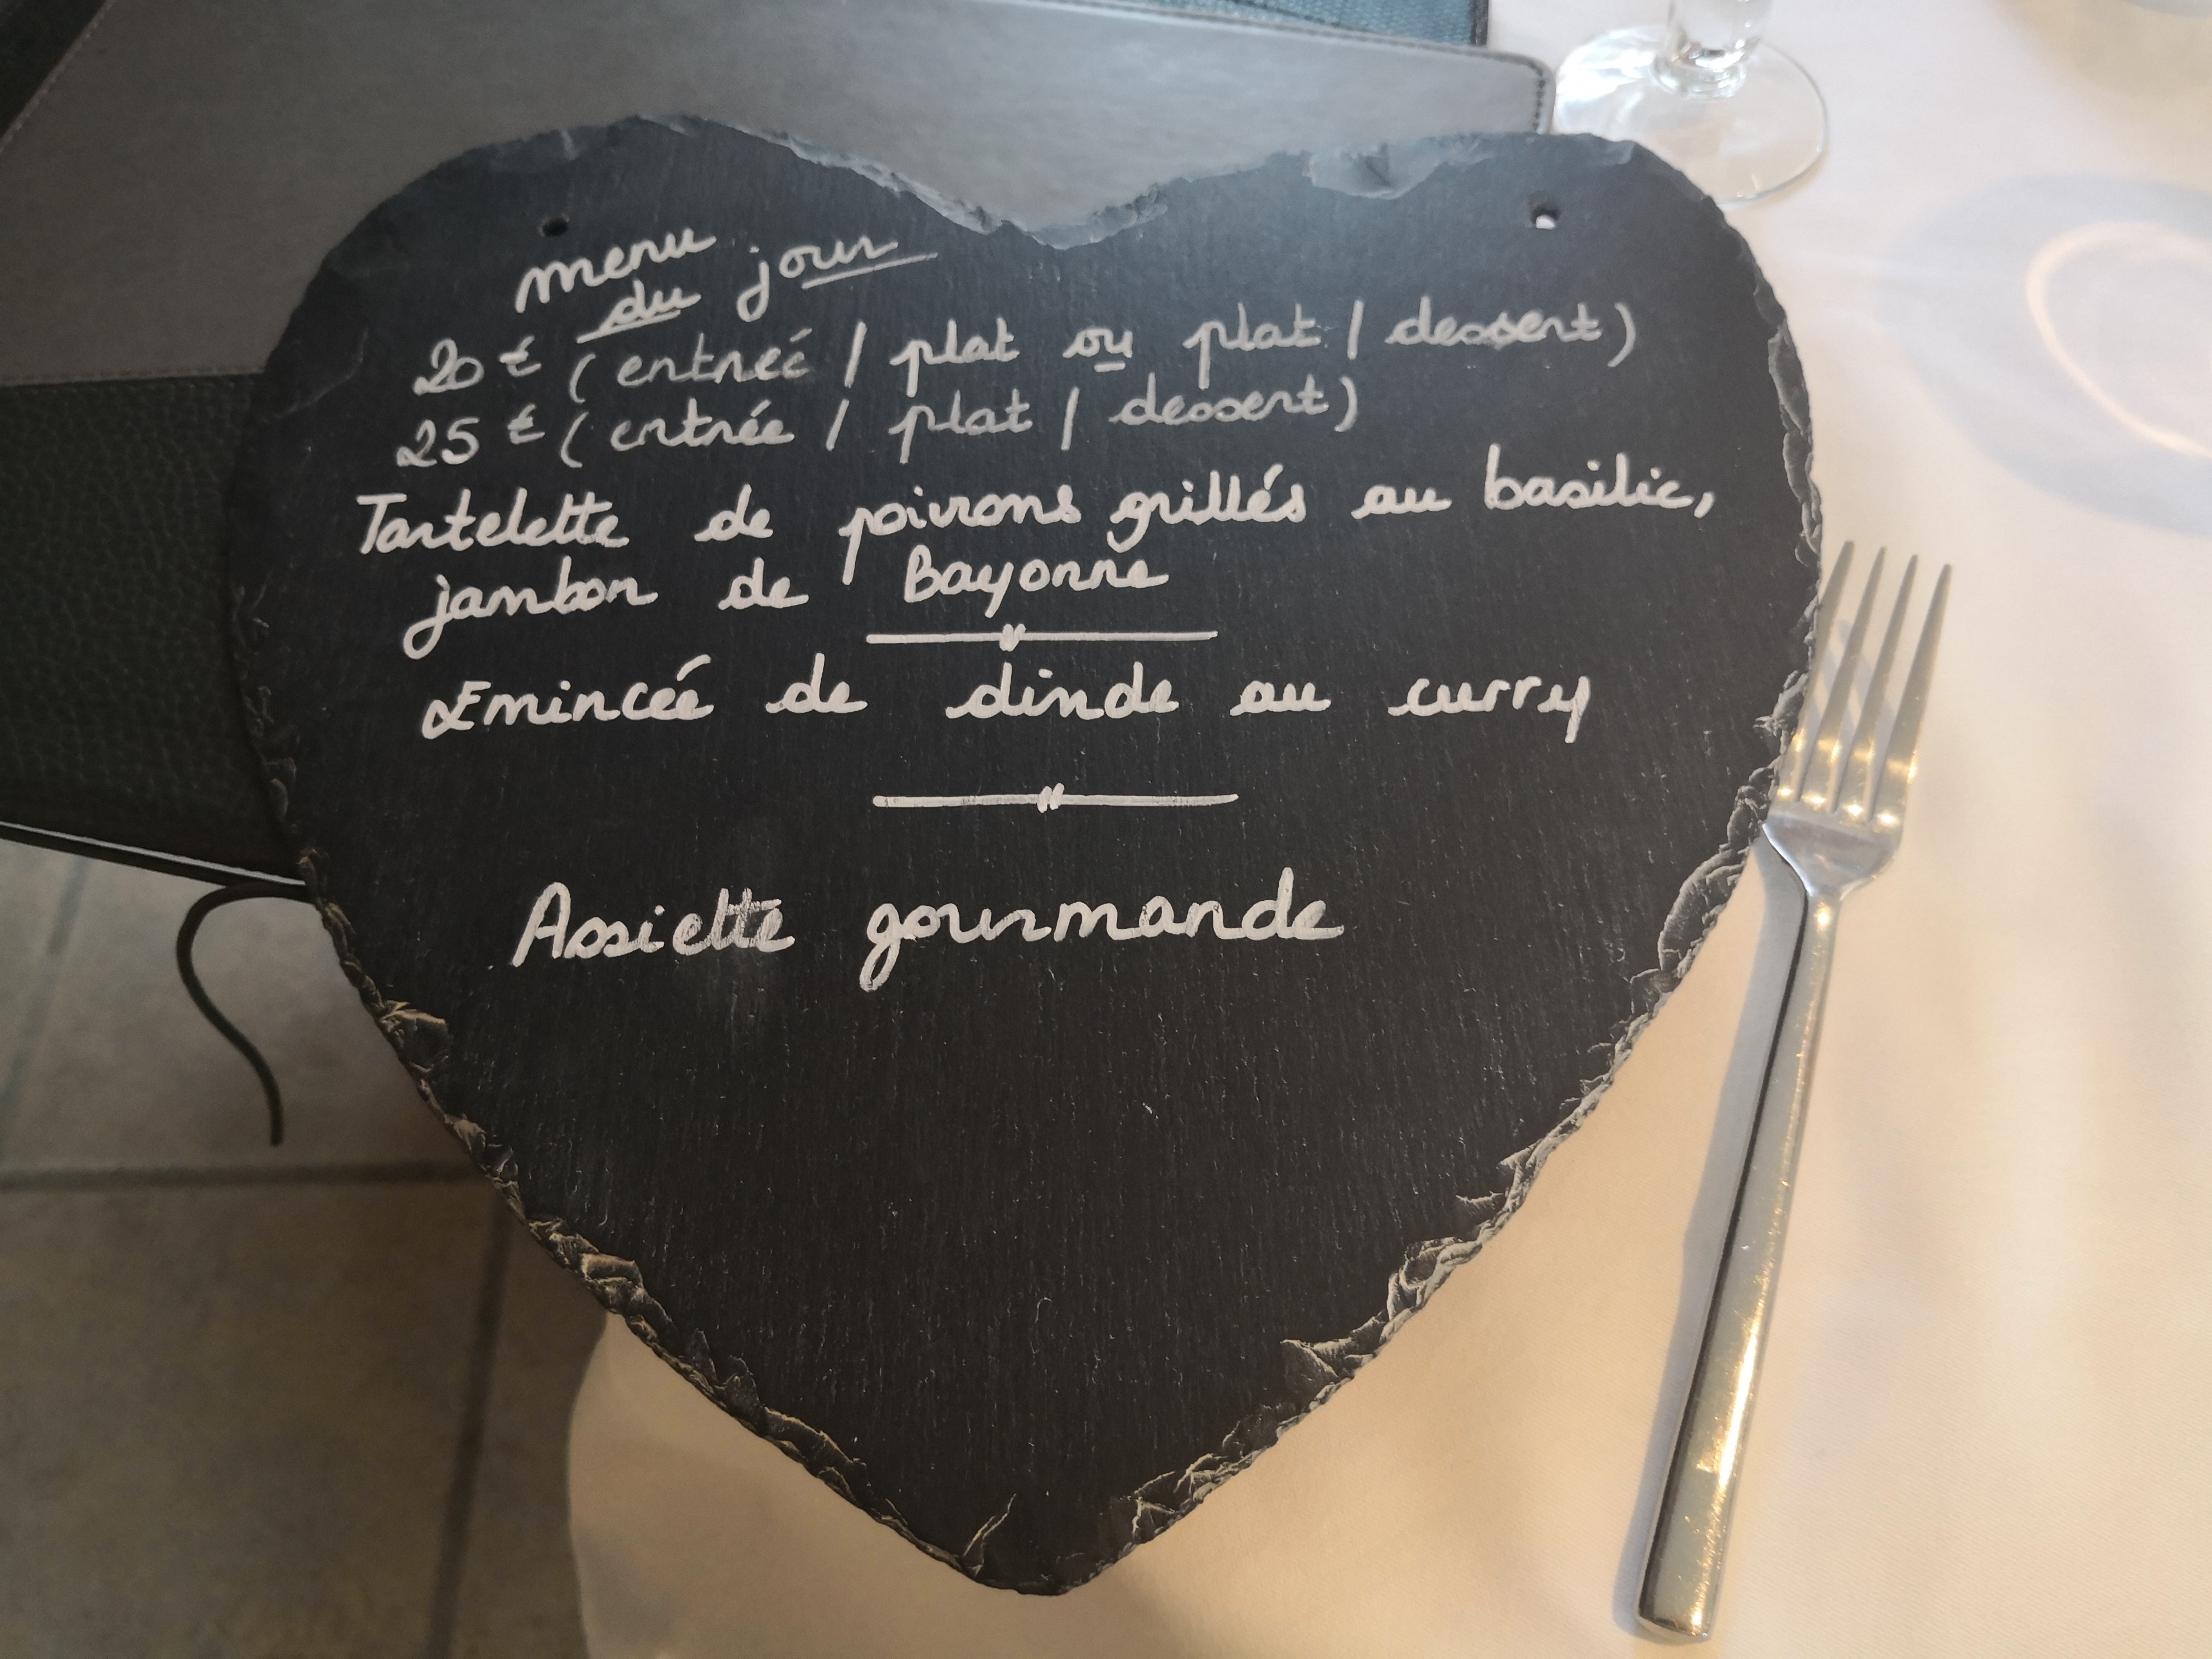 menu
du jour
20 € (entrée / plat ou plat / dessert)
25 € (entrée / plat / dessert)
Tartelette de poivrons grillés au basilic,
jambon de Bayonne
Emincée de dinde au curry
Assiette gourmande